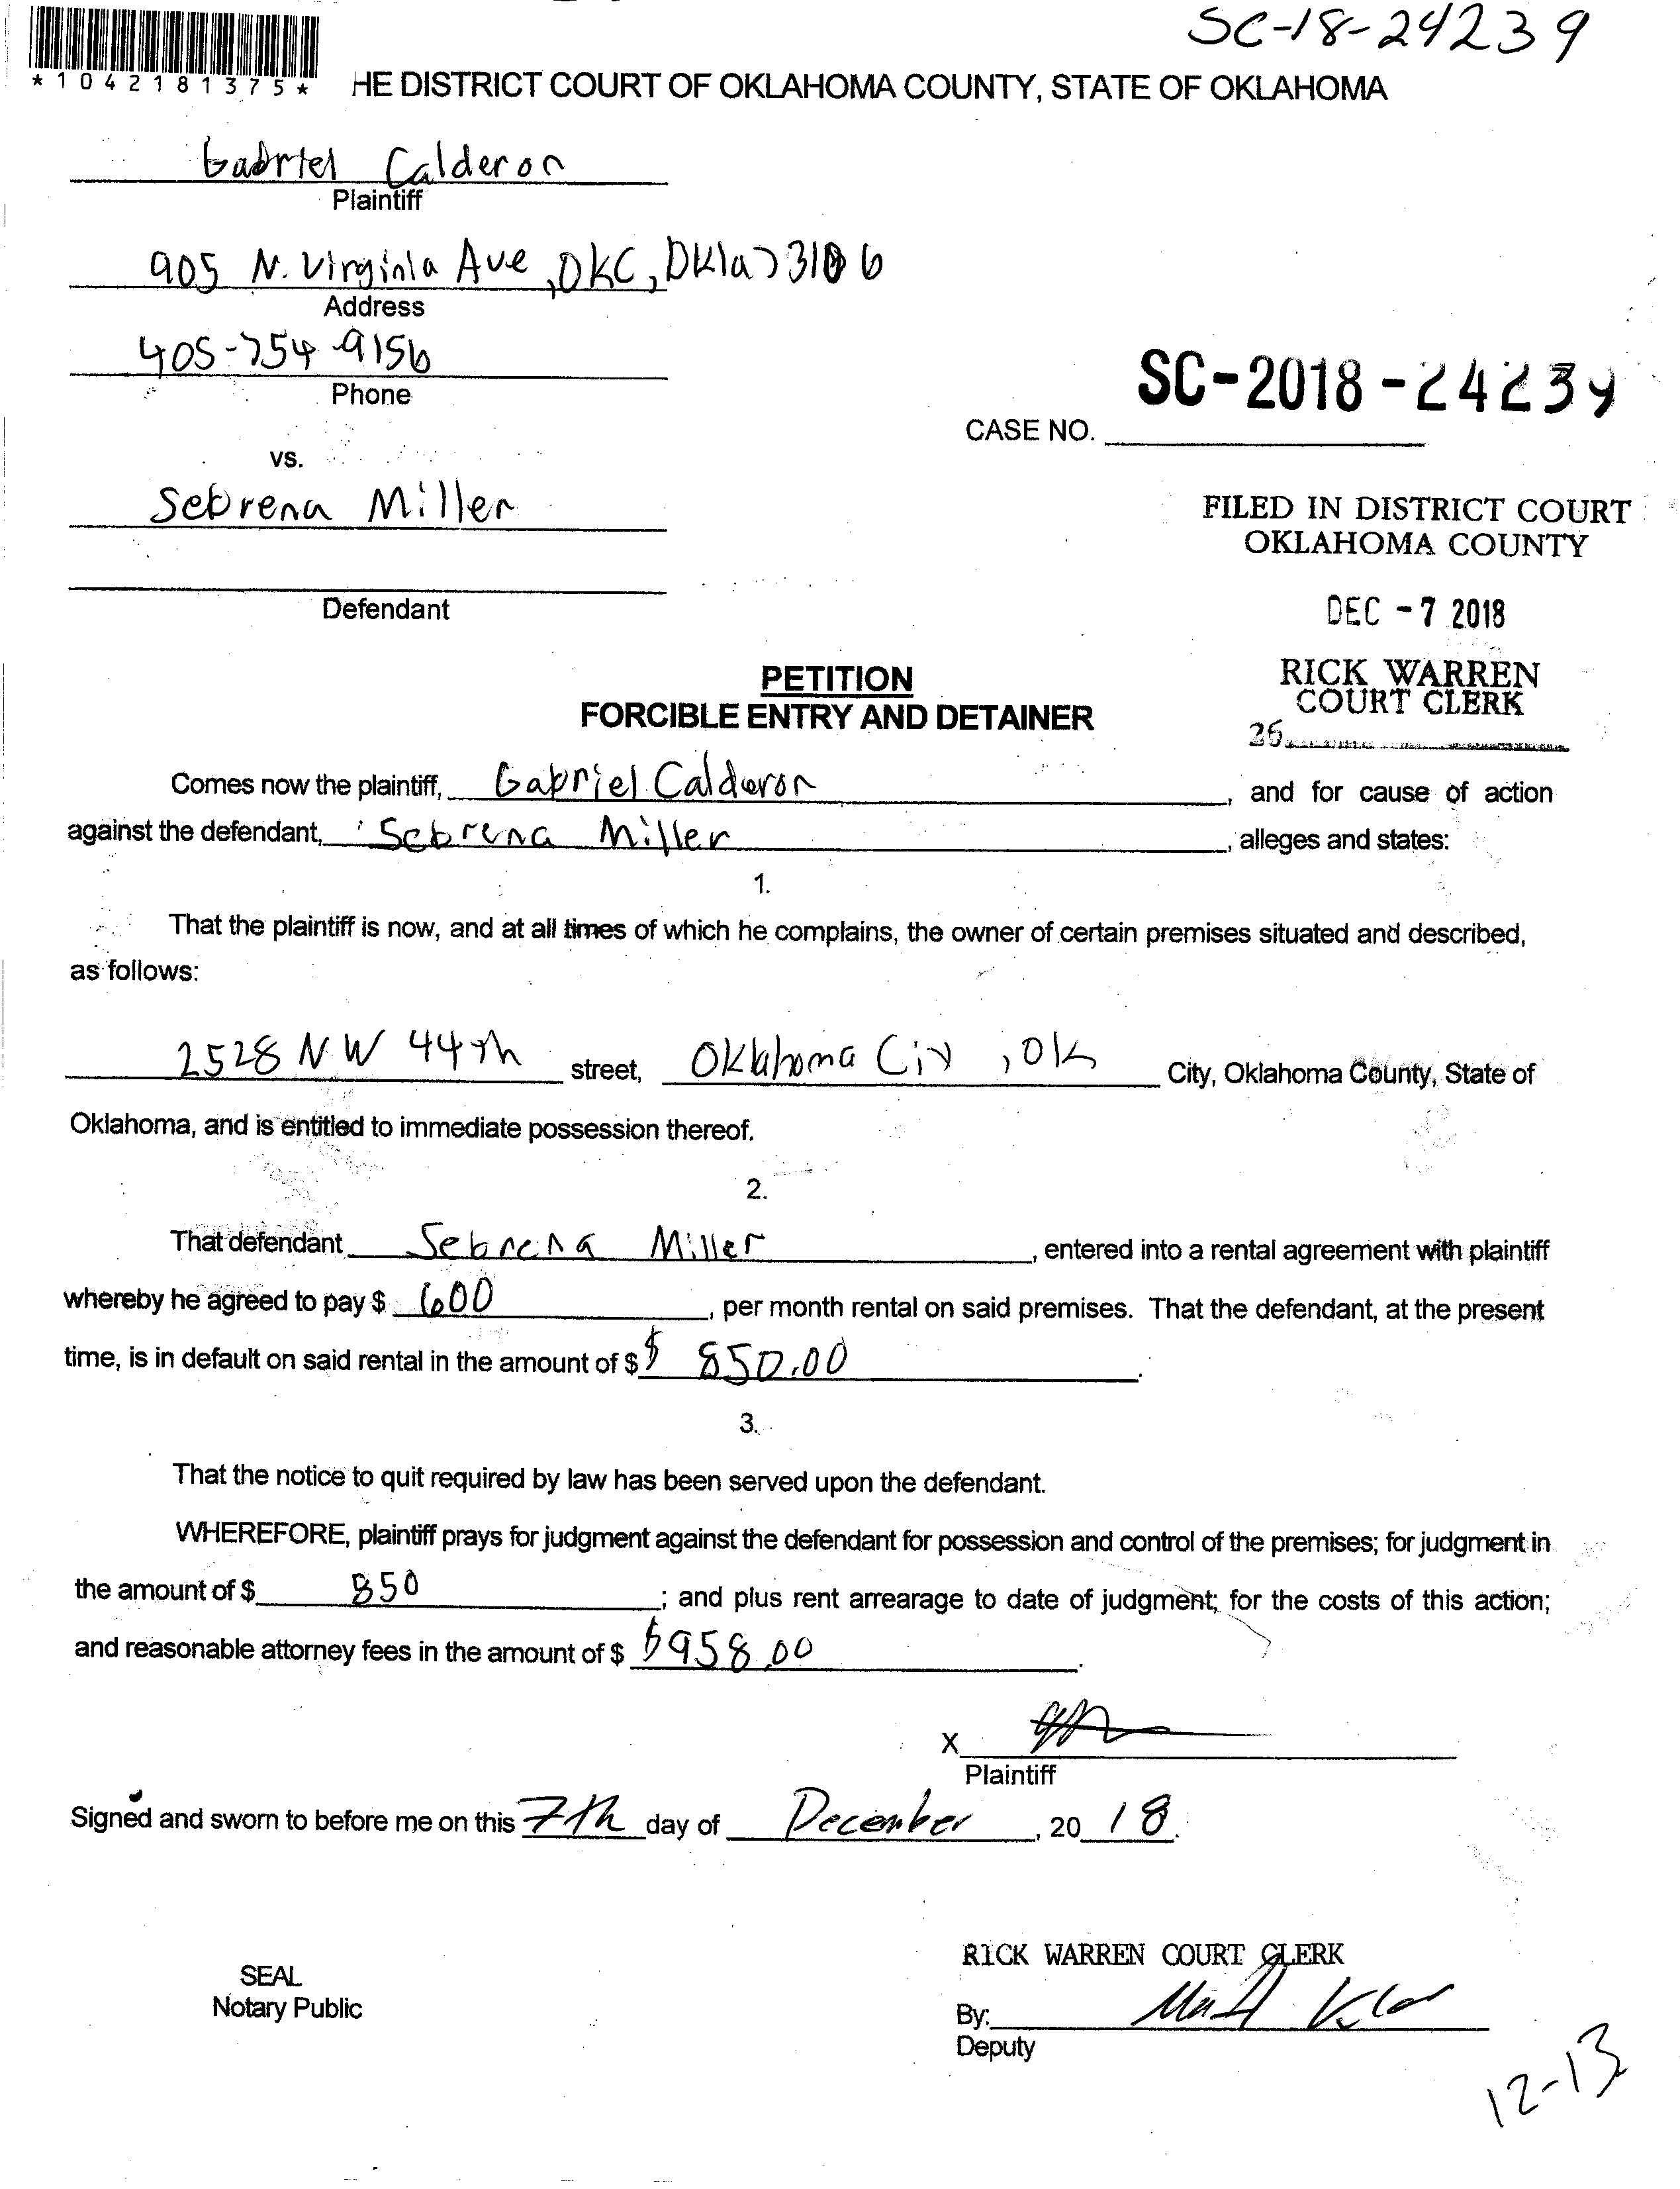 SC-18-24239
*1042181375* HE DISTRICT COURT OF OKLAHOMA COUNTY, STATE OF OKLAHOMA
Gabriel Calderon
Plaintiff
905 N. Virginia Ave, OKC, Okla 73106
Address
405-754-9156
Phone
SC-2018-24239
CASE NO.
vs.
Sebrena Miller
FILED IN DISTRICT COURT
OKLAHOMA COUNTY
Defendant
DEC - 7 2018
PETITION
RICK WARREN
COURT CLERK
FORCIBLE ENTRY AND DETAINER
26
Comes now the plaintiff, Gabriel Calderon, and for cause of action
against the defendant, Sebrena Miller, alleges and states:
1.
That the plaintiff is now, and at all times of which he complains, the owner of certain premises situated and described,
as follows:
2528 NW 44th street, Oklahoma City, OK City, Oklahoma County, State of
Oklahoma, and is entitled to immediate possession thereof.
2.
That defendant Sebrena Miller, entered into a rental agreement with plaintiff
whereby he agreed to pay $ 600, per month rental on said premises. That the defendant, at the present
time, is in default on said rental in the amount of $ $ 850.00.
3.
That the notice to quit required by law has been served upon the defendant.
WHEREFORE, plaintiff prays for judgment against the defendant for possession and control of the premises; for judgment in
the amount of $ 850; and plus rent arrearage to date of judgment; for the costs of this action;
and reasonable attorney fees in the amount of $ $958.00.
X
Plaintiff
Signed and sworn to before me on this 7th day of December, 20 18.
RICK WARREN COURT CLERK
SEAL
Notary Public
By:
Deputy
12-13